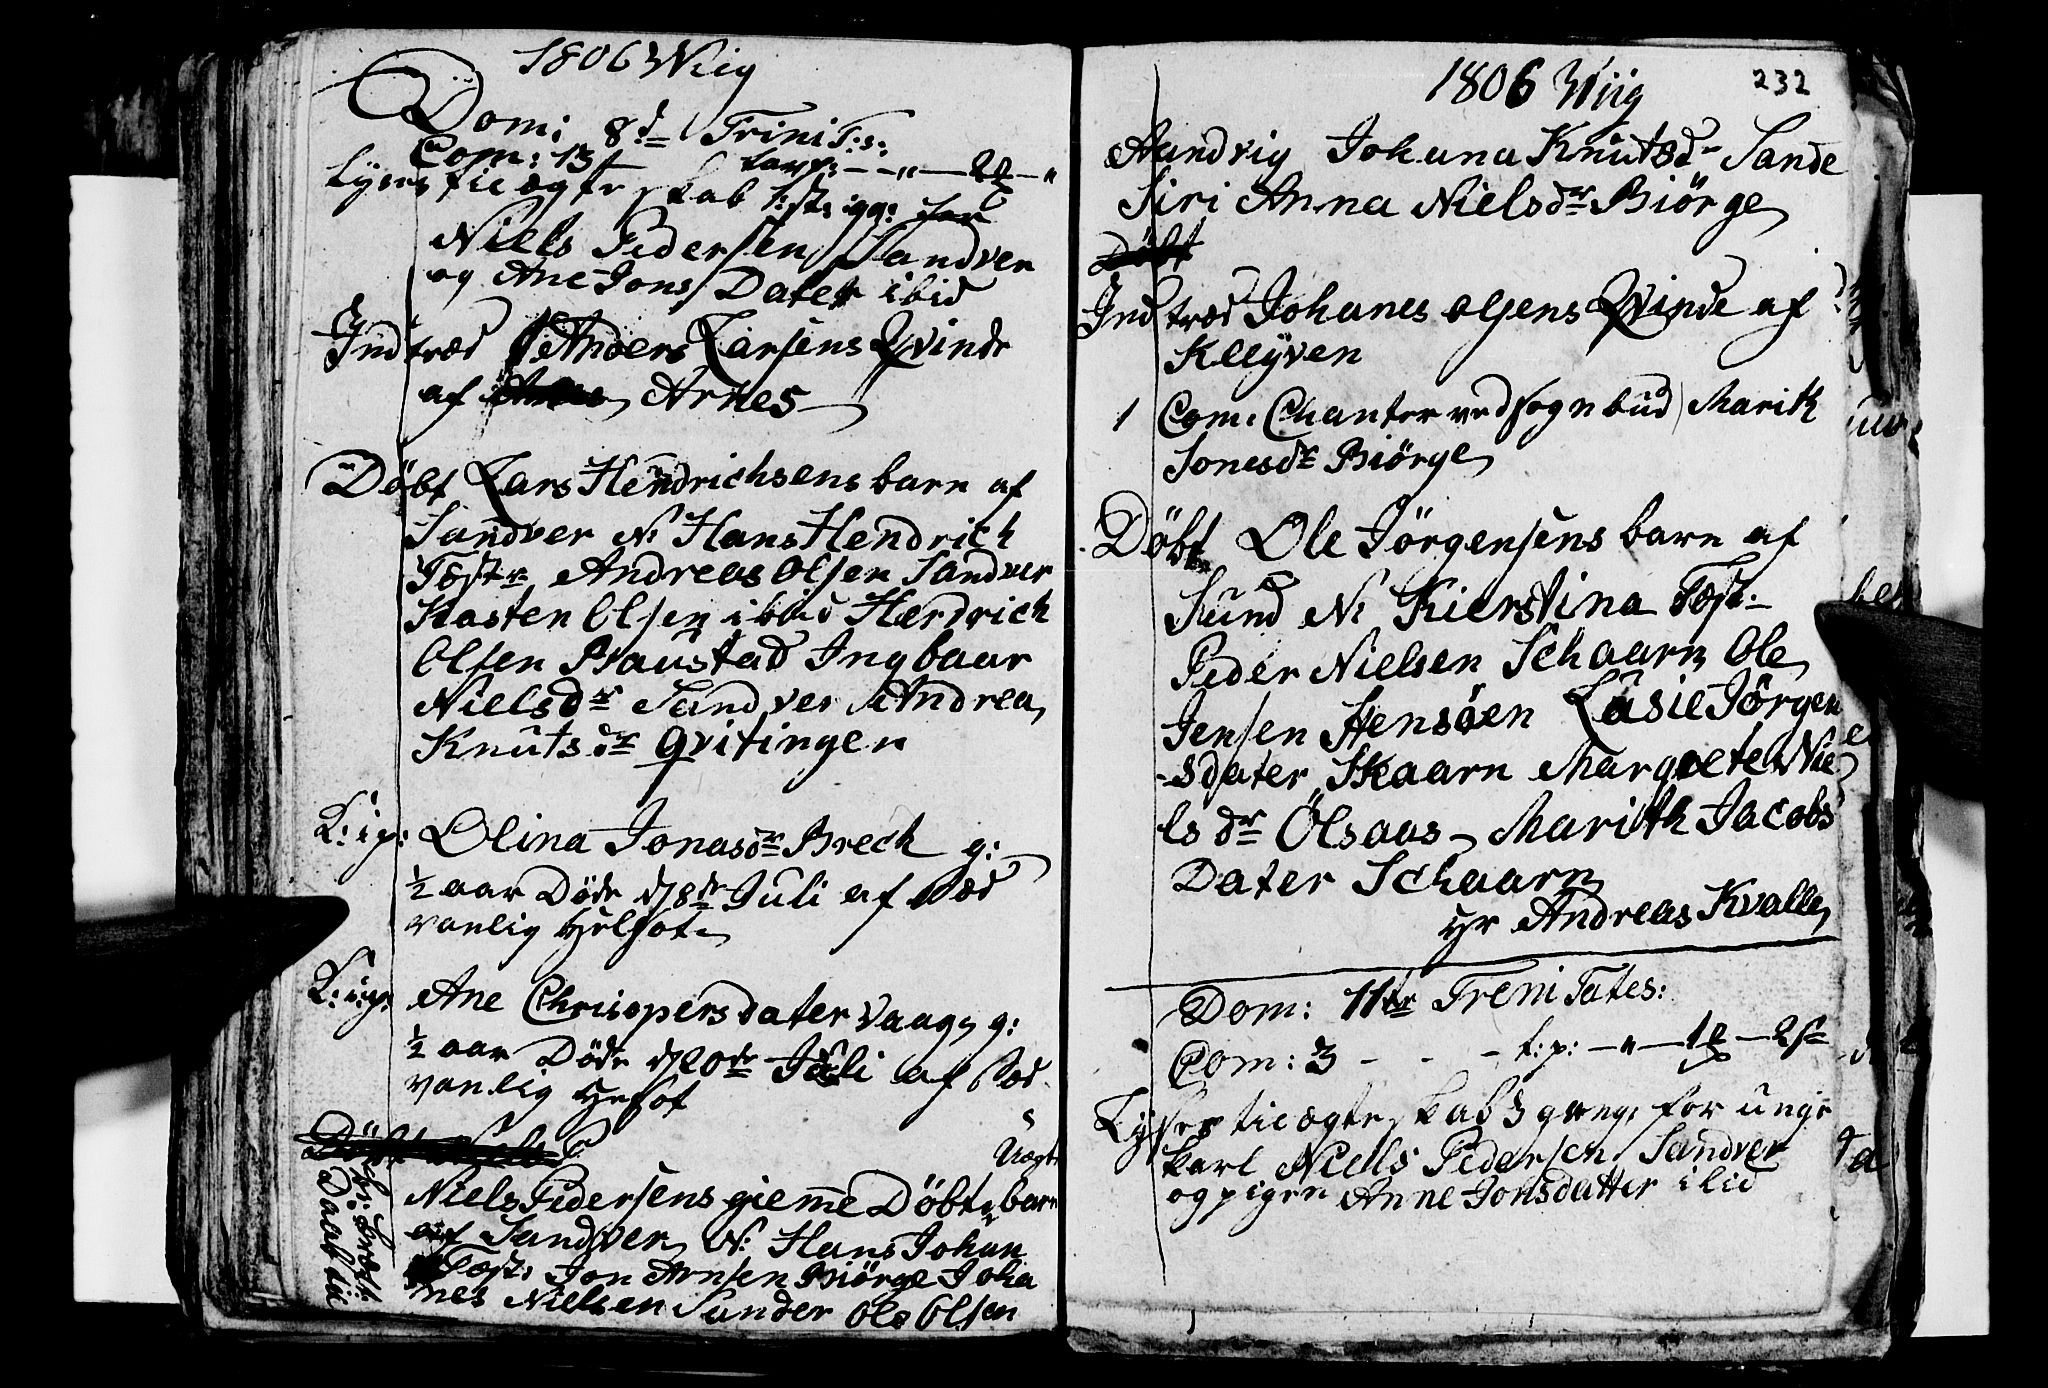 1806 Wiig
Dom: 8de Trinit:s:
Com: 13
Lyses tie ægteskab 1:st: gg: for
Niels Pedersen Sandver
og Ane Jons Dater ibid
Indtræd Anders Larsens Qvinde
af Arnes
Döbt Lars Hendrichsens barn af
Sandver N: Hans Hendrich
Test: Andreas Olsen Sandver
Kasten Olsen ibid Hendrich
Olsen Braustad Ingbaar
Nielsdr Sandver Andrea
Knutsdr Qvitingen
Olina Jonasdr Brech g:
1/2 aar Döde d 8de Juli af Sæd
vanlig Helsot
Ane Chrisopersdater Vaag g:
1/2 aar Döde d 20de Juli af Sæd
vanlig Helsot
Döbt
Uægte
Niels Pedersens giemme Döbte barn
af Sandver N: Hans Johan
Test: Jon Arnsen Biörge Joha
nes Nielsen Sander Ole Olsen
Daab tie
1806 Wiig
232
Aandvig Johana Knutsd Sande
Siri Anna Nielsdr Biörge
Döbt
Indtræd Johanes Olsens Qvinde af
Kleÿven
1 Com: Chanter ved sognebud Marith
Jonesdr Biörge
Döbt Ole Jörgensens barn af
Sund N: Kierstina Test:
Peder Nielsen Schaarn Ole
Jensen Stensöen Lusie Jörgen
sdater Skaarn Margrete Nie
lsdr Ölsaas Marith Jacobs
Dater Schaarn
yr Andreas Kvalle
Dom: 11te TreniTates:
Com: 3 - - - t:p:
Lyses tie ægteskab 3 gang: for unge
karl Niels Pedersen Sandver
og pigen Anne Jonsdatter ibid